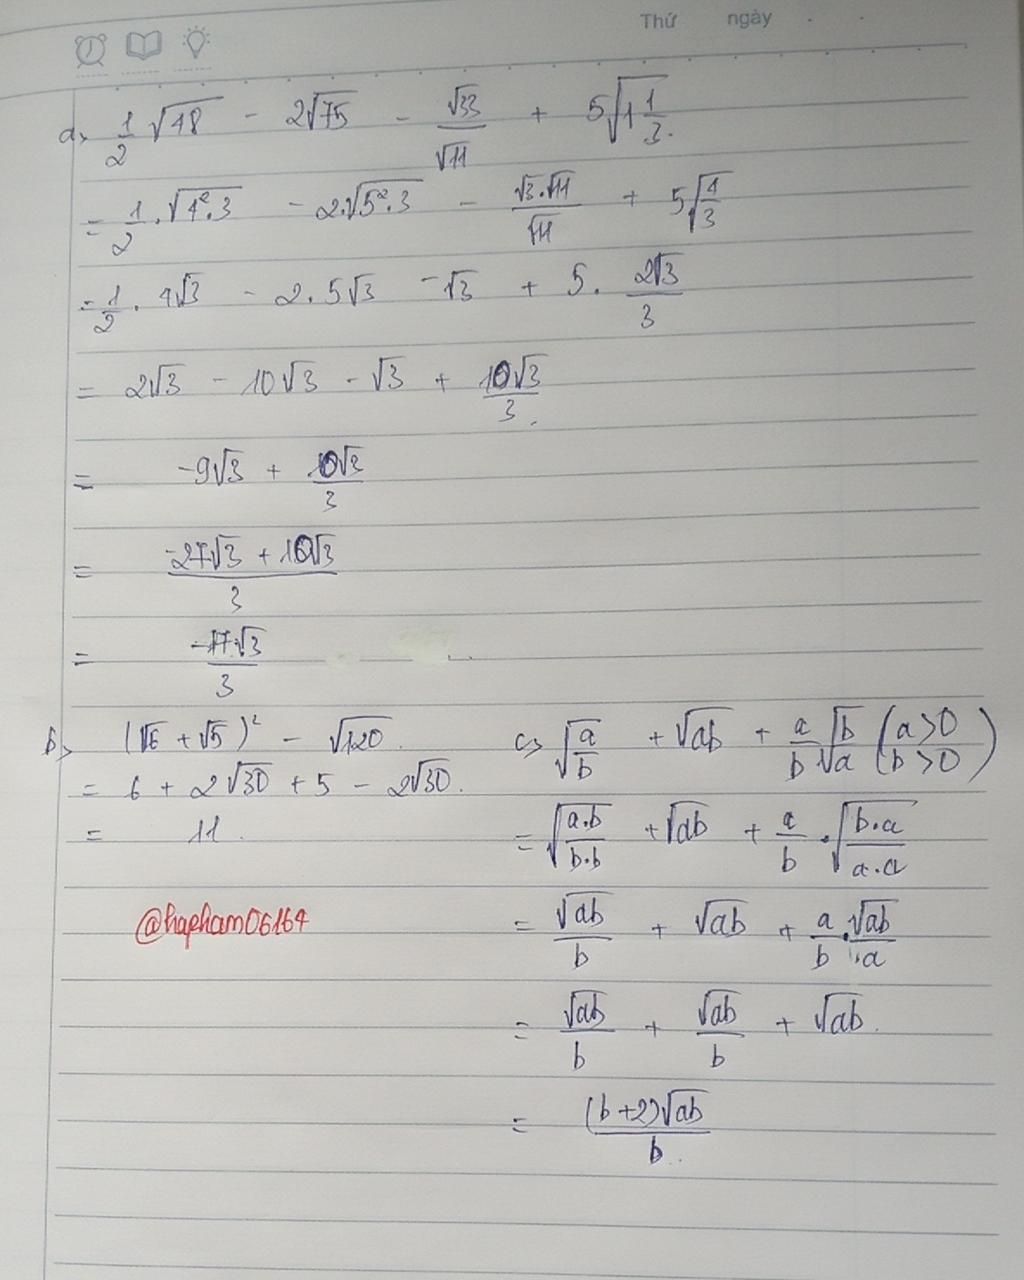 Thứ ngày . .
a> 1/2 √48 - 2√75 - √33/√11 + 5√(1 1/3).
= 1/2 . √(4².3) - 2.√(5².3) - √3.√11/√11 + 5√(4/3)
= 1/2 . 4√3 - 2.5√3 - √3 + 5. 2√3/3
= 2√3 - 10√3 - √3 + 10√3/3.
= -9√3 + 10√3/3
= (-27√3 + 10√3)/3
= -17√3/3
b> (√6 + √5)² - √120.
= 6 + 2√30 + 5 - 2√30.
= 11.
@hapham06164
c> √(a/b) + √ab + a/b √(b/a) (a>0 b>0)
= √(a.b/b.b) + √ab + a/b . √(b.a/a.a)
= √ab/b + √ab + a/b . √ab/a
= √ab/b + √ab/b + √ab.
= (b+2)√ab/b.